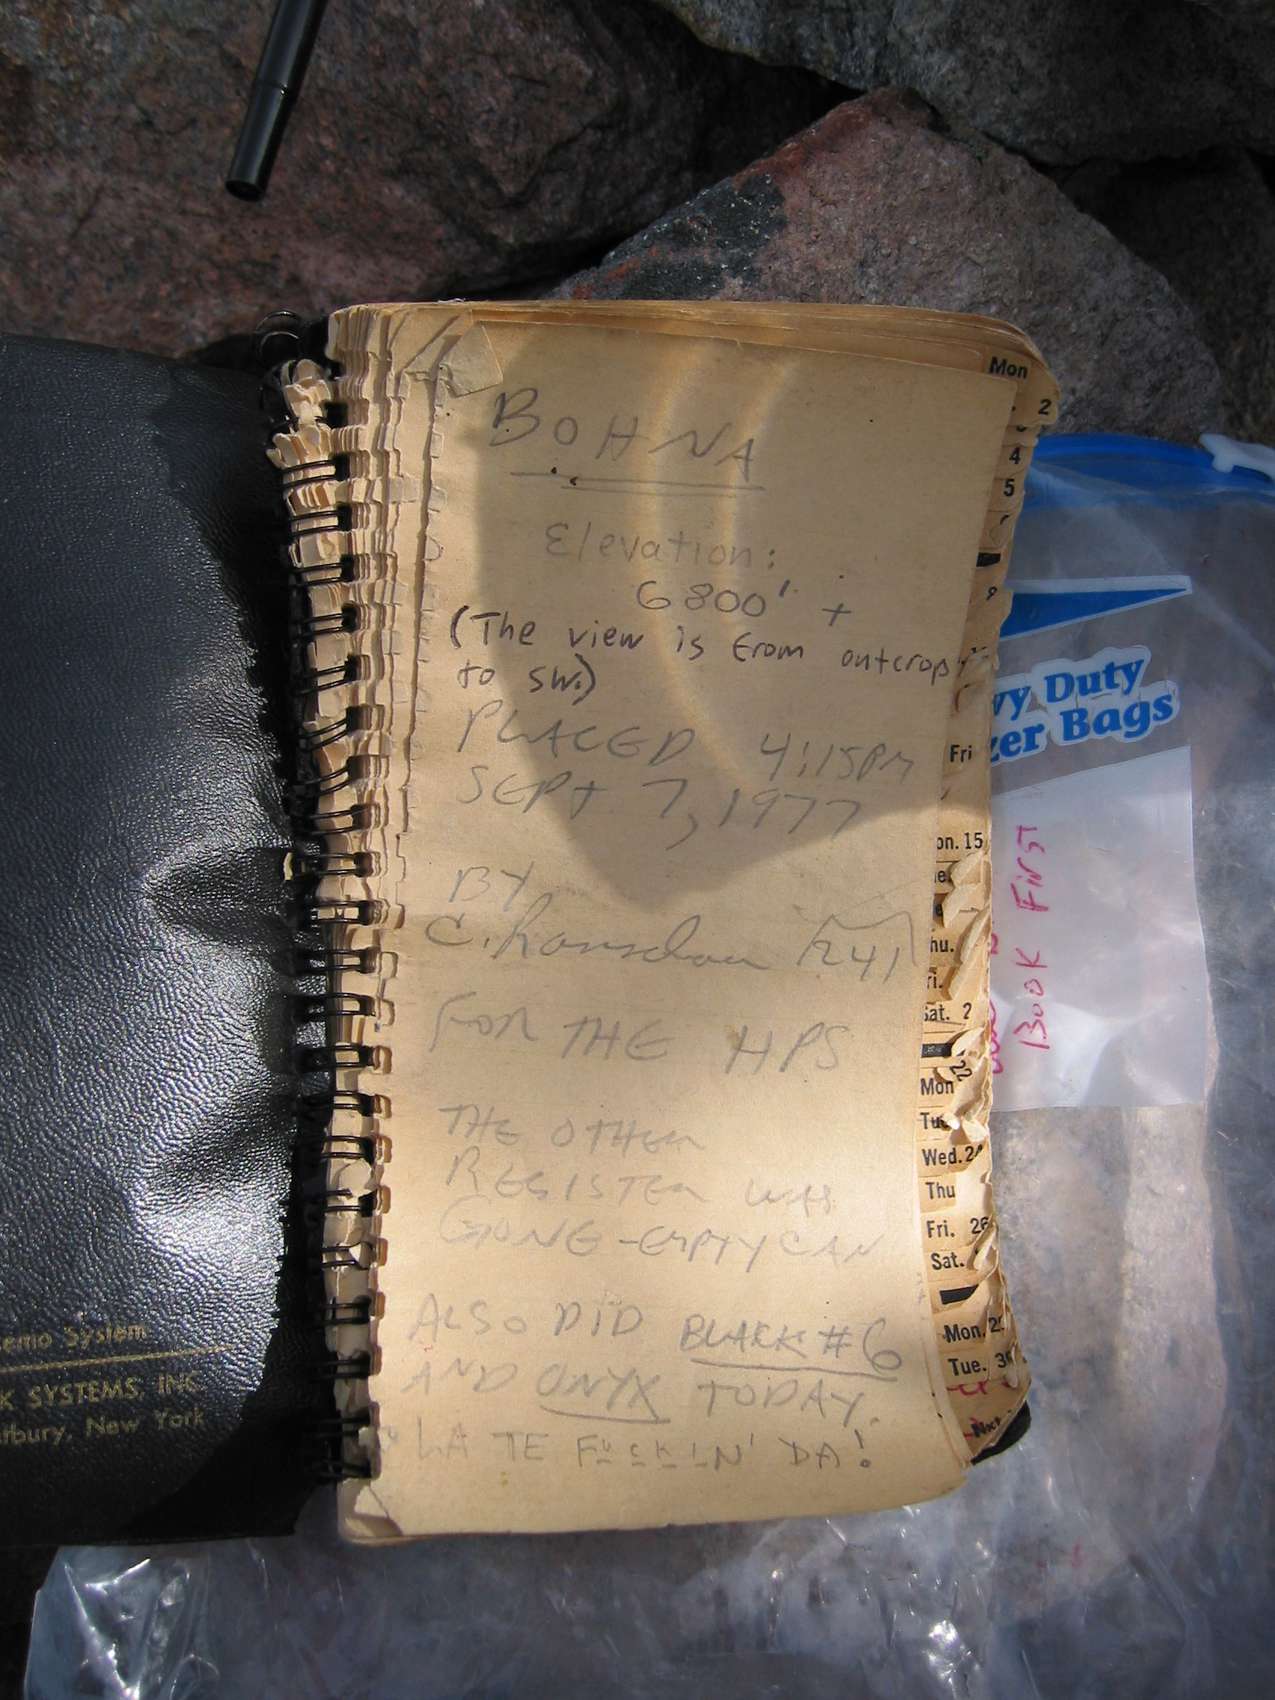 BOHNA
Elevation:
6800' +
(The view is from outcrop
to SW.)
PLACED 4:15PM
SEPT 7, 1977
BY
C.
FOR THE HPS
THE OTHER
REGISTER WAS
GONE - EMPTY CAN
ALSO DID BLACK #6
AND ONYX TODAY.
LA TE FUCKIN' DA!
Mon
2
4
5
9
Fri
on. 15
hu.
ri.
Sat. 2
22
Mon
Tue
Wed. 24
Thu
Fri. 26
Sat.
Mon. 29
Tue. 30
Nxt
emo System
K SYSTEMS, INC
tbury, New York
vy Duty
zer Bags
Book First